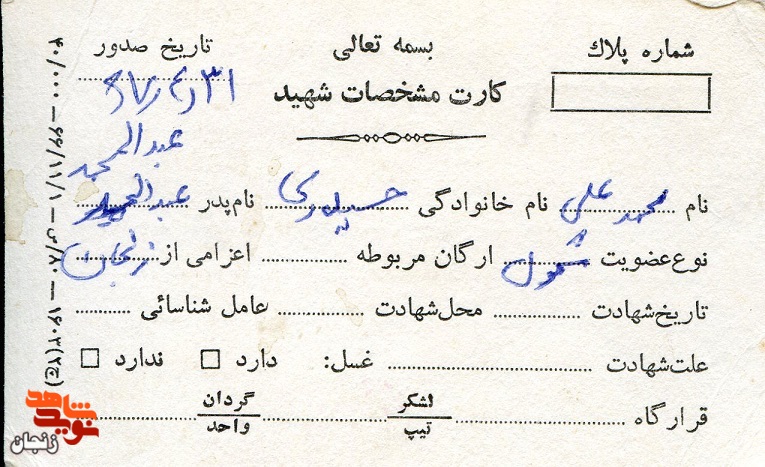 شماره پلاك
بسمه تعالی
تاریخ صدور
کارت مشخصات شهید
عبدالمجید
نام محمدعلی نام خانوادگی حیدری نام پدر عبدالمجید
نوع عضویت مشمول ارگان مربوطه اعزامی از زنجان
تاریخ شهادت محل شهادت عامل شناسائی
علت شهادت غسل: دارد □ ندارد □
قرارگاه لشکر تیپ گردان واحد
۴۰/۰۰۰ — ۶۶/۱۱/۱ — س/۸۰ — ۱۶۰۳(ج۲)
نوید شاهد
زنجان